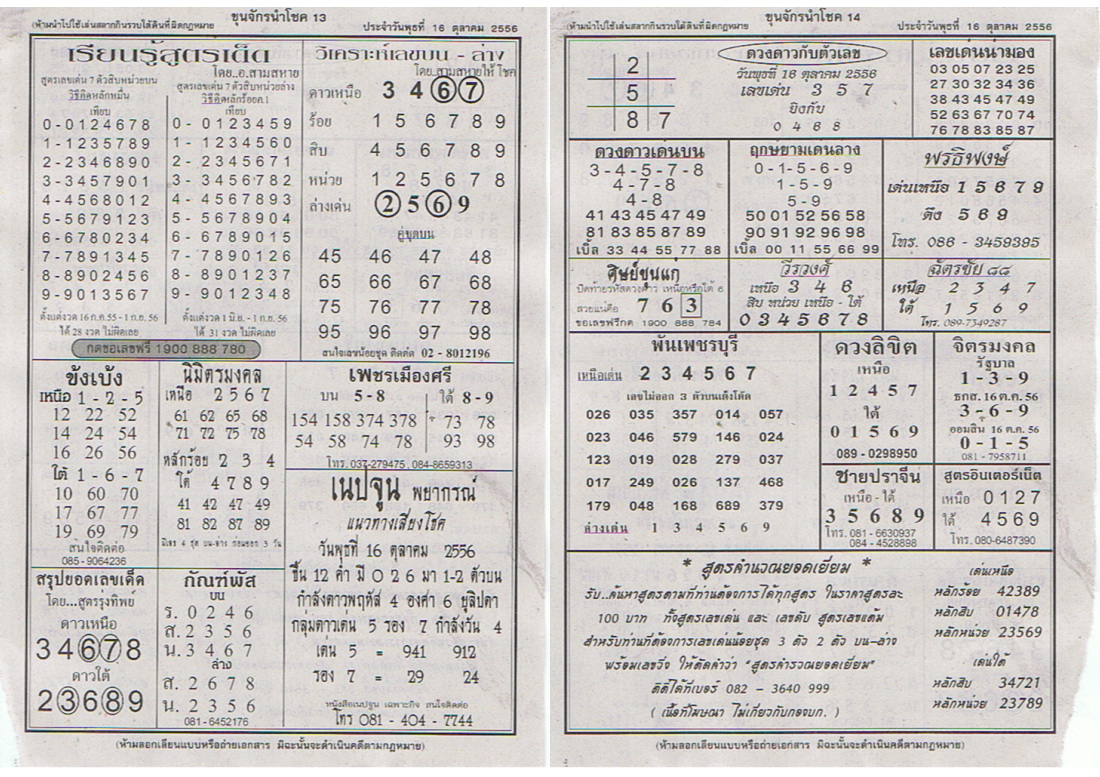 (ห้ามนำไปใช้เล่นสลากกินรวบใต้ดินที่ผิดกฎหมาย ขุนจักรนำโชค 13 ประจำวันพุธที่ 16 ตุลาคม 2556
เรียนรู้สูตรเด็ด
โดย..อ.สามสหาย
สูตรเลขเด่น 7 ตัวสิบหน่วยบน
วิธีคิดหลักหมื่น
เทียบ
0-0124678
1-1235789
2-2346890
3-3457901
4-4568012
5-5679123
6-6780234
7-7891345
8-8902456
9-9013567
ตั้งแต่งวด 16 ก.ค.55 - 1 ก.ย. 56
ได้ 28 งวด ไม่ผิดเลย
สูตรเลขเด่น 7 ตัวสิบหน่วยล่าง
วิธีคิดหลักร้อยค.1
เทียบ
0- 0123459
1- 1234560
2- 2345671
3- 3456782
4- 4567893
5- 5678904
6- 6789015
7- 7890126
8- 8901237
9- 9012348
ตั้งแต่งวด 1 มิ.ย. - 1 ก.ย. 56
ได้ 31 งวด ไม่ผิดเลย
กดขอเลขฟรี 1900 888 780
วิเคราะห์เลขบน - ล่าง
โดย..สามสหายให้โชค
ดาวเหนือ 3 4 6 7
ร้อย 1 5 6 7 8 9
สิบ 4 5 6 7 8 9
หน่วย 1 2 5 6 7 8
ล่างเด่น 2 5 6 9
คู่ชุดบน
45 46 47 48
65 66 67 68
75 76 77 78
95 96 97 98
สนใจเลขน้อยชุด ติดต่อ 02 - 8012196
ขังเบ้ง
เหนือ 1 - 2 - 5
12 22 52
14 24 54
16 26 56
ใต้ 1 - 6 - 7
10 60 70
17 67 77
19 69 79
สนใจติดต่อ
085-9064236
นิมิตรมงคล
เหนือ 2 5 6 7
61 62 65 68
71 72 75 78
หลักร้อย 2 3 4
ใต้ 4 7 8 9
41 42 47 49
81 82 87 89
เพชรเมืองศรี
บน 5-8 ใต้ 8-9
154 158 374 378 73 78
54 58 74 78 93 98
โทร. 037-279475, 084-8659313
เนปจูน พยากรณ์
แนวทางเสี่ยงโชค
วันพุธที่ 16 ตุลาคม 2556
ขึ้น 12 ค่ำ มี 0 2 6 มา 1-2 ตัวบน
กำลังดาวพฤหัส 4 องศา 6 ยุลิปดา
กลุ่มดาวเด่น 5 รอง 7 กำลังวัน 4
เด่น 5 = 941 912
รอง 7 = 29 24
หนังสือเนปจูน เฉพาะกิจ สนใจติดต่อ
โทร 081 - 404 - 7744
สรุปยอดเลขเด็ด
โดย...สูตรรุ่งทิพย์
ดาวเหนือ
3 4 6 7 8
ดาวใต้
2 3 6 8 9
กัณฑ์พัส
บน
ร. 0 2 4 6
ส. 2 3 5 6
น. 3 4 6 7
ล่าง
ส. 2 6 7 8
น. 2 3 5 6
081-6452176
(ห้ามลอกเลียนแบบหรือถ่ายเอกสาร มิฉะนั้นจะดำเนินคดีตามกฎหมาย)
(ห้ามนำไปใช้เล่นสลากกินรวบใต้ดินที่ผิดกฎหมาย ขุนจักรนำโชค 14 ประจำวันพุธที่ 16 ตุลาคม 2556
2
5
8 7
ดวงดาวกับตัวเลข
วันพุธที่ 16 ตุลาคม 2556
เลขเด่น 3 5 7
ยิงกับ
0 4 6 8
เลขเด่นน่ามอง
03 05 07 23 25
27 30 32 34 36
38 43 45 47 49
52 63 67 70 74
76 78 83 85 87
ดวงดาวเด่นบน
3-4-5-7-8
4-7-8
4-8
41 43 45 47 49
81 83 85 87 89
เบิ้ล 33 44 55 77 88
ฤกษยามเดนลาง
0-1-5-6-9
1-5-9
5-9
50 01 52 56 58
90 91 92 96 98
เบิ้ล 00 11 55 66 99
พรธิพงษ์
เด่นเหนือ 1 5 6 7 9
ดึง 5 6 9
โทร. 086 - 3459395
ศิษย์ขุนแก่
ปิดท้ายรหัสดวงดาว เหนือหรือใต้ 6
สวยแน่คือ 7 6 3
ขอเลขฟรีกด 1900 888 784
วีรวงศ์
เหนือ 3 4 6
สิบ หน่วย เหนือ - ใต้
0 3 4 5 6 7 8
ฉัตรชัย ๘๘
เหนือ 2 3 4 7
ใต้ 1 5 6 9
โทร. 089-7349287
พันเพชรบุรี
เหนือเด่น 2 3 4 5 6 7
เลขไม่ออก 3 ตัวบนเต็งโต๊ด
026 035 357 014 057
023 046 579 146 024
123 019 028 279 037
017 249 026 137 468
179 048 168 689 379
ล่างเด่น 1 3 4 5 6 9
ดวงลิขิต
เหนือ
1 2 4 5 7
ใต้
0 1 5 6 9
089 - 0298950
จิตรมงคล
รัฐบาล
1 - 3 - 9
ธกส. 16 ต.ค. 56
3 - 6 - 9
ออมสิน 16 ต.ค. 56
0 - 1 - 5
081 - 7958711
ชายปราจีน
เหนือ - ใต้
3 5 6 8 9
โทร. 081 - 6630937
084 - 4528898
สูตรอินเตอร์เน็ต
เหนือ 0127
ใต้ 4569
โทร. 080-6487390
* สูตรคำนวณยอดเยี่ยม *
รับ..ค้นหาสูตรตามที่ท่านต้องการได้ทุกสูตร ในราคาสูตรละ
100 บาท ทั้งสูตรเลขเด่น และ เลขดับ สูตรเลขแต้ม
สำหรับท่านที่ต้องการเลขเด่นน้อยชุด 3 ตัว 2 ตัว บน-ล่าง
พร้อมเลขวิ่ง ให้ติดคำว่า "สูตรคำรวณยอดเยี่ยม"
ติดได้ที่เบอร์ 082 - 3640 999
( เนื้อที่โฆษณา ไม่เกี่ยวกับกองบก. )
เด่นเหนือ
หลักร้อย 42389
หลักสิบ 01478
หลักหน่วย 23569
เด่นใต้
หลักสิบ 34721
หลักหน่วย 23789
(ห้ามลอกเลียนแบบหรือถ่ายเอกสาร มิฉะนั้นจะดำเนินคดีตามกฎหมาย)